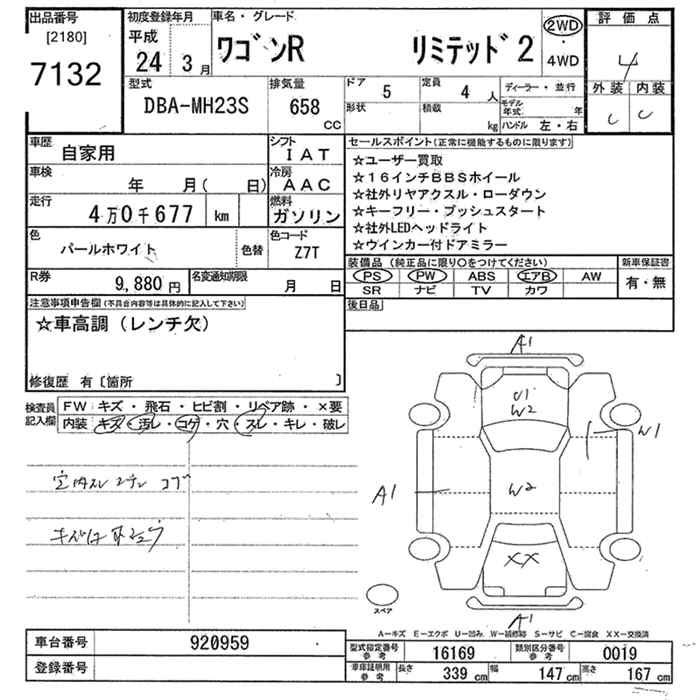 出品番号 初度登録年月 車名・グレード 評価点
[2180] 平成 2WD
7132 24 3月 ワゴンR リミテッド2 ・ 4
4WD
型式 排気量 ドア 5 定員 4人 ディーラー・並行 外装 内装
DBA-MH23S 658 cc 形状 積載 kg モデル年式 年 C C
ハンドル 左・右
車歴 自家用 シフト IAT セールスポイント(正常に機能するものに限ります)
車検 年 月( 日) 冷房 AAC ☆ユーザー買取
☆16インチBBSホイール
走行 4万0千677 km 燃料 ガソリン ☆社外リヤアクスル・ローダウン
☆キーフリー・プッシュスタート
色 パールホワイト 色替 色コード Z7T ☆社外LEDヘッドライト
☆ウインカー付ドアミラー
R券 9,880円 名変通知期限 月 日 装備品(純正品に限り○をつけてください) 新車保証書
PS PW ABS エアB AW 有・無
SR ナビ TV カワ
注意事項申告欄(不具合内容等は具体的に記入して下さい) 後日品
☆車高調(レンチ欠)
修復歴 有〔箇所 〕
検査員記入欄 FW キズ・飛石・ヒビ割・リペア跡・×要
内装 キズ・汚レ・コゲ・穴・スレ・キレ・破レ
A1
U1
W2
W1
A1
W2
XX
A1
スペア
A-キズ E-エクボ U-凹み W-補修跡 S-サビ C-腐食 XX-交換済
車台番号 920959 型式指定番号 参考 16169 類別区分番号 参考 0019
登録番号 車庫証明用 参考 長さ 339 cm 幅 147 cm 高さ 167 cm